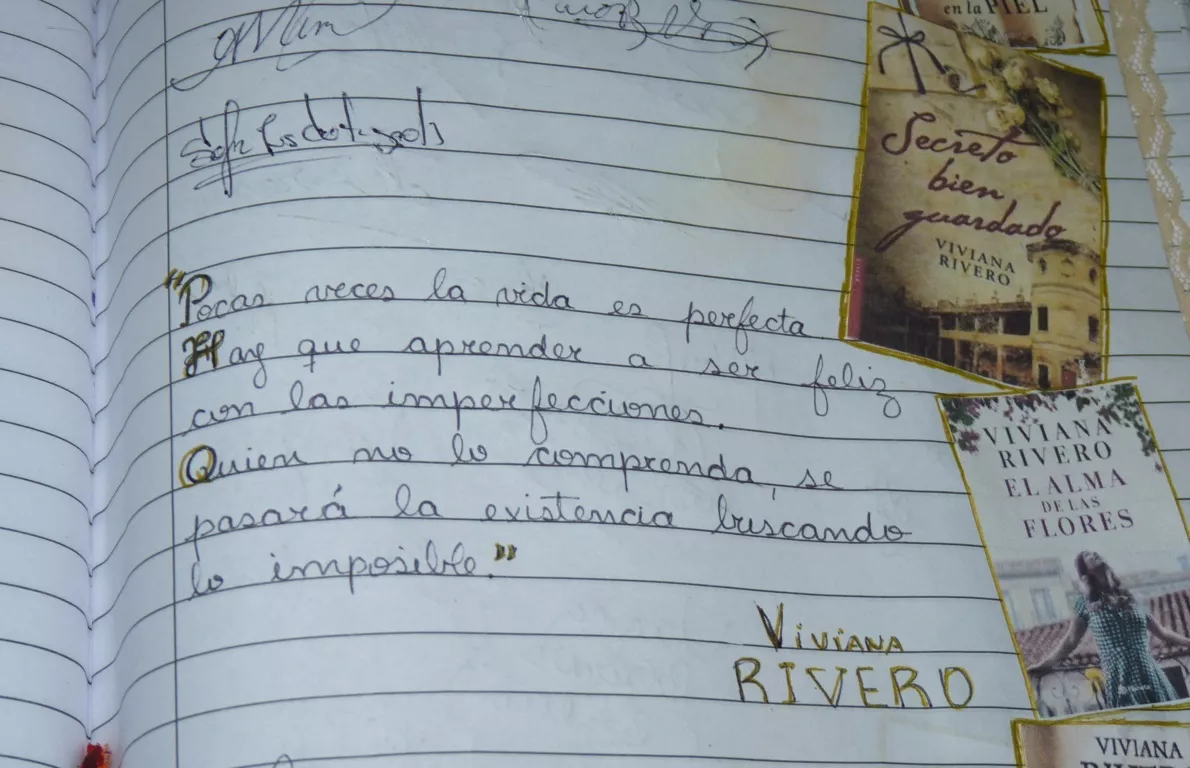 en la PIEL
Secreto
bien
guardado
VIVIANA
RIVERO
"Pocas veces la vida es perfecta
Hay que aprender a ser feliz
con las imperfecciones.
Quien no lo comprenda, se
pasará la existencia buscando
lo imposible."
VIVIANA
RIVERO
VIVIANA
RIVERO
EL ALMA
DE LAS
FLORES
VIVIANA